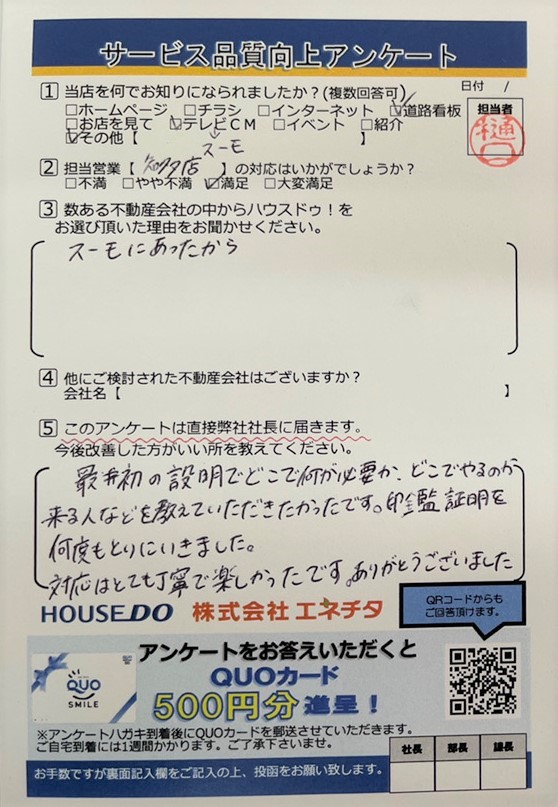 サービス品質向上アンケート
日付 /
1 当店を何でお知りになられましたか?(複数回答可)
担当者
樋口
□ホームページ □チラシ □インターネット ☑道路看板
□お店を見て ☑テレビCM □イベント □紹介
☑その他【 】
スーモ
2 担当営業【 知多店 】の対応はいかがでしょうか?
□不満 □やや不満 ☑満足 □大変満足
3 数ある不動産会社の中からハウスドゥ!を
お選び頂いた理由をお聞かせください。
スーモにあったから
4 他にご検討された不動産会社はございますか?
会社名【 】
5 このアンケートは直接弊社社長に届きます。
今後改善した方がいい所を教えてください。
最初の説明でどこで何が必要か、どこでやるのか
来る人などを教えていただきたかったです。印鑑証明を
何度もとりにいきました。
対応はとても丁寧で楽しかったです。ありがとうございました
HOUSEDO 株式会社エネチタ
QRコードからも
ご回答頂けます。
アンケートをお答えいただくと
QUOカード
500円分進呈!
QUO
SMILE
※アンケートハガキ到着後にQUOカードを郵送させていただきます。
ご自宅到着には1週間かかります。ご了承下さいませ。
社長 部長 課長
お手数ですが裏面記入欄をご記入の上、投函をお願い致します。